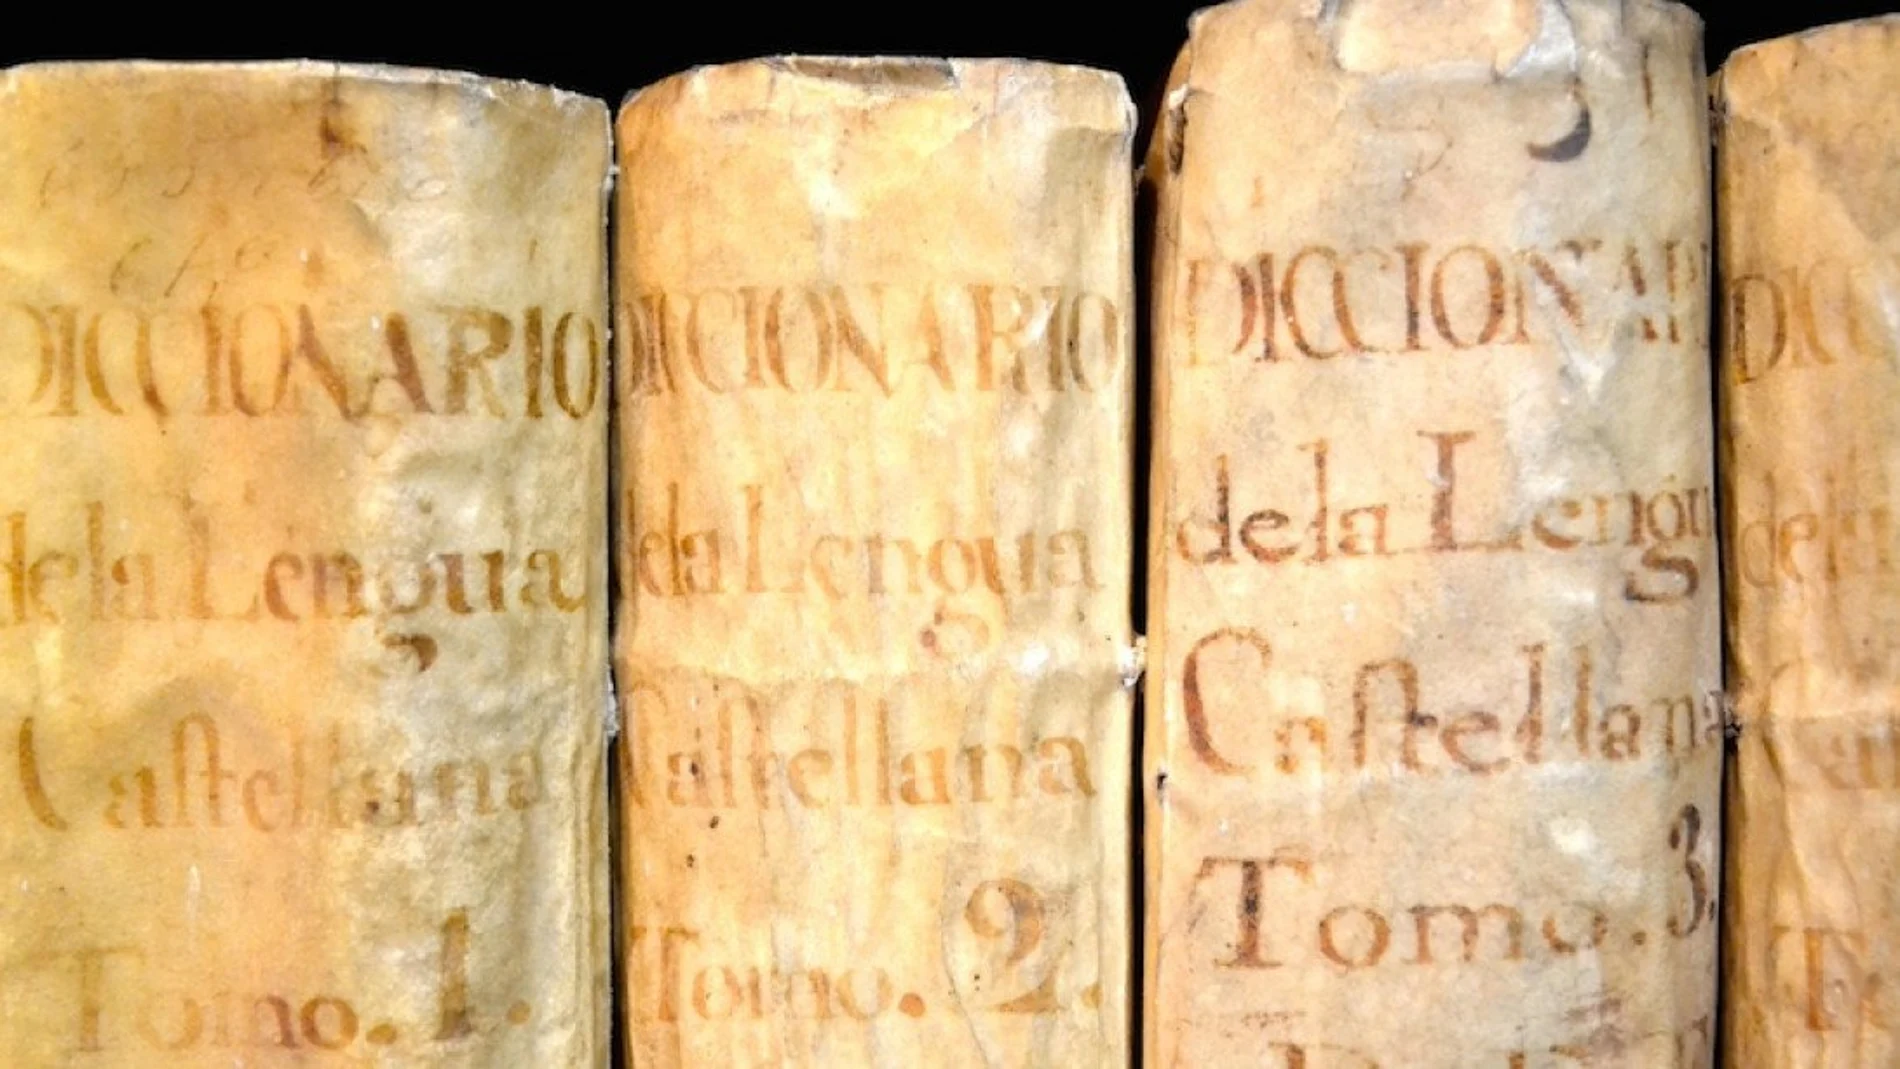 DICCIONARIO
de la Lengua
Caſtellana
Tomo. 1.
DICCIONARIO
de la Lengua
Caſtellana
Tomo. 2.
DICCIONARI
de la Lengu
Caſtellana
Tomo. 3.
DICC
de la
Caſ
To